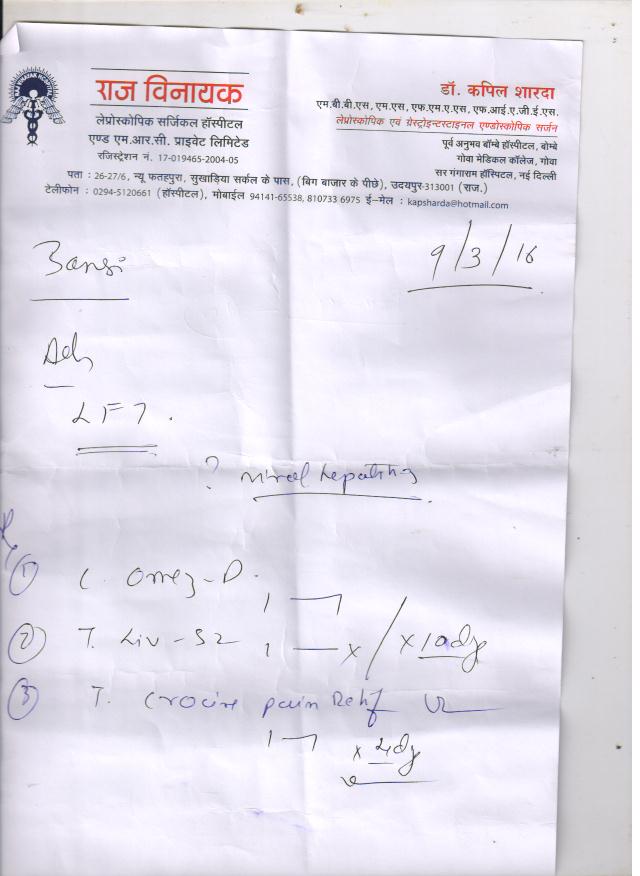 राज विनायक
लेप्रोस्कोपिक सर्जिकल हॉस्पीटल
एण्ड एम.आर.सी. प्राइवेट लिमिटेड
रजिस्ट्रेशन नं. 17-019465-2004-05
डॉ. कपिल शारदा
एम.बी.बी.एस, एम.एस, एफ.एम.ए.एस, एफ.आई.ए.जी.ई.एस.
लेप्रोस्कोपिक एवं गेस्ट्रोइन्टस्टाइनल एण्डोस्कोपिक सर्जन
पूर्व अनुभव बॉम्बे हॉस्पीटल, बोम्बे
गोवा मेडिकल कॉलेज, गोवा
सर गंगाराम हॉस्पिटल, नई दिल्ली
पता : 26-27/6, न्यू फतहपुरा, सुखाड़िया सर्कल के पास, (बिग बाजार के पीछे), उदयपुर-313001 (राज.)
टेलीफोन : 0294-5120661 (हॉस्पीटल), मोबाईल 94141-65538, 810733 6975 ई-मेल : kapsharda@hotmail.com
Bansi
9/3/16
Adv
LFT.
? viral hepatitis
Rx
① C. Omez-D.
1 — 1
② T. Liv-52
1 — x / x 10 dy
③ T. Crocin pain Relief
1 — 1